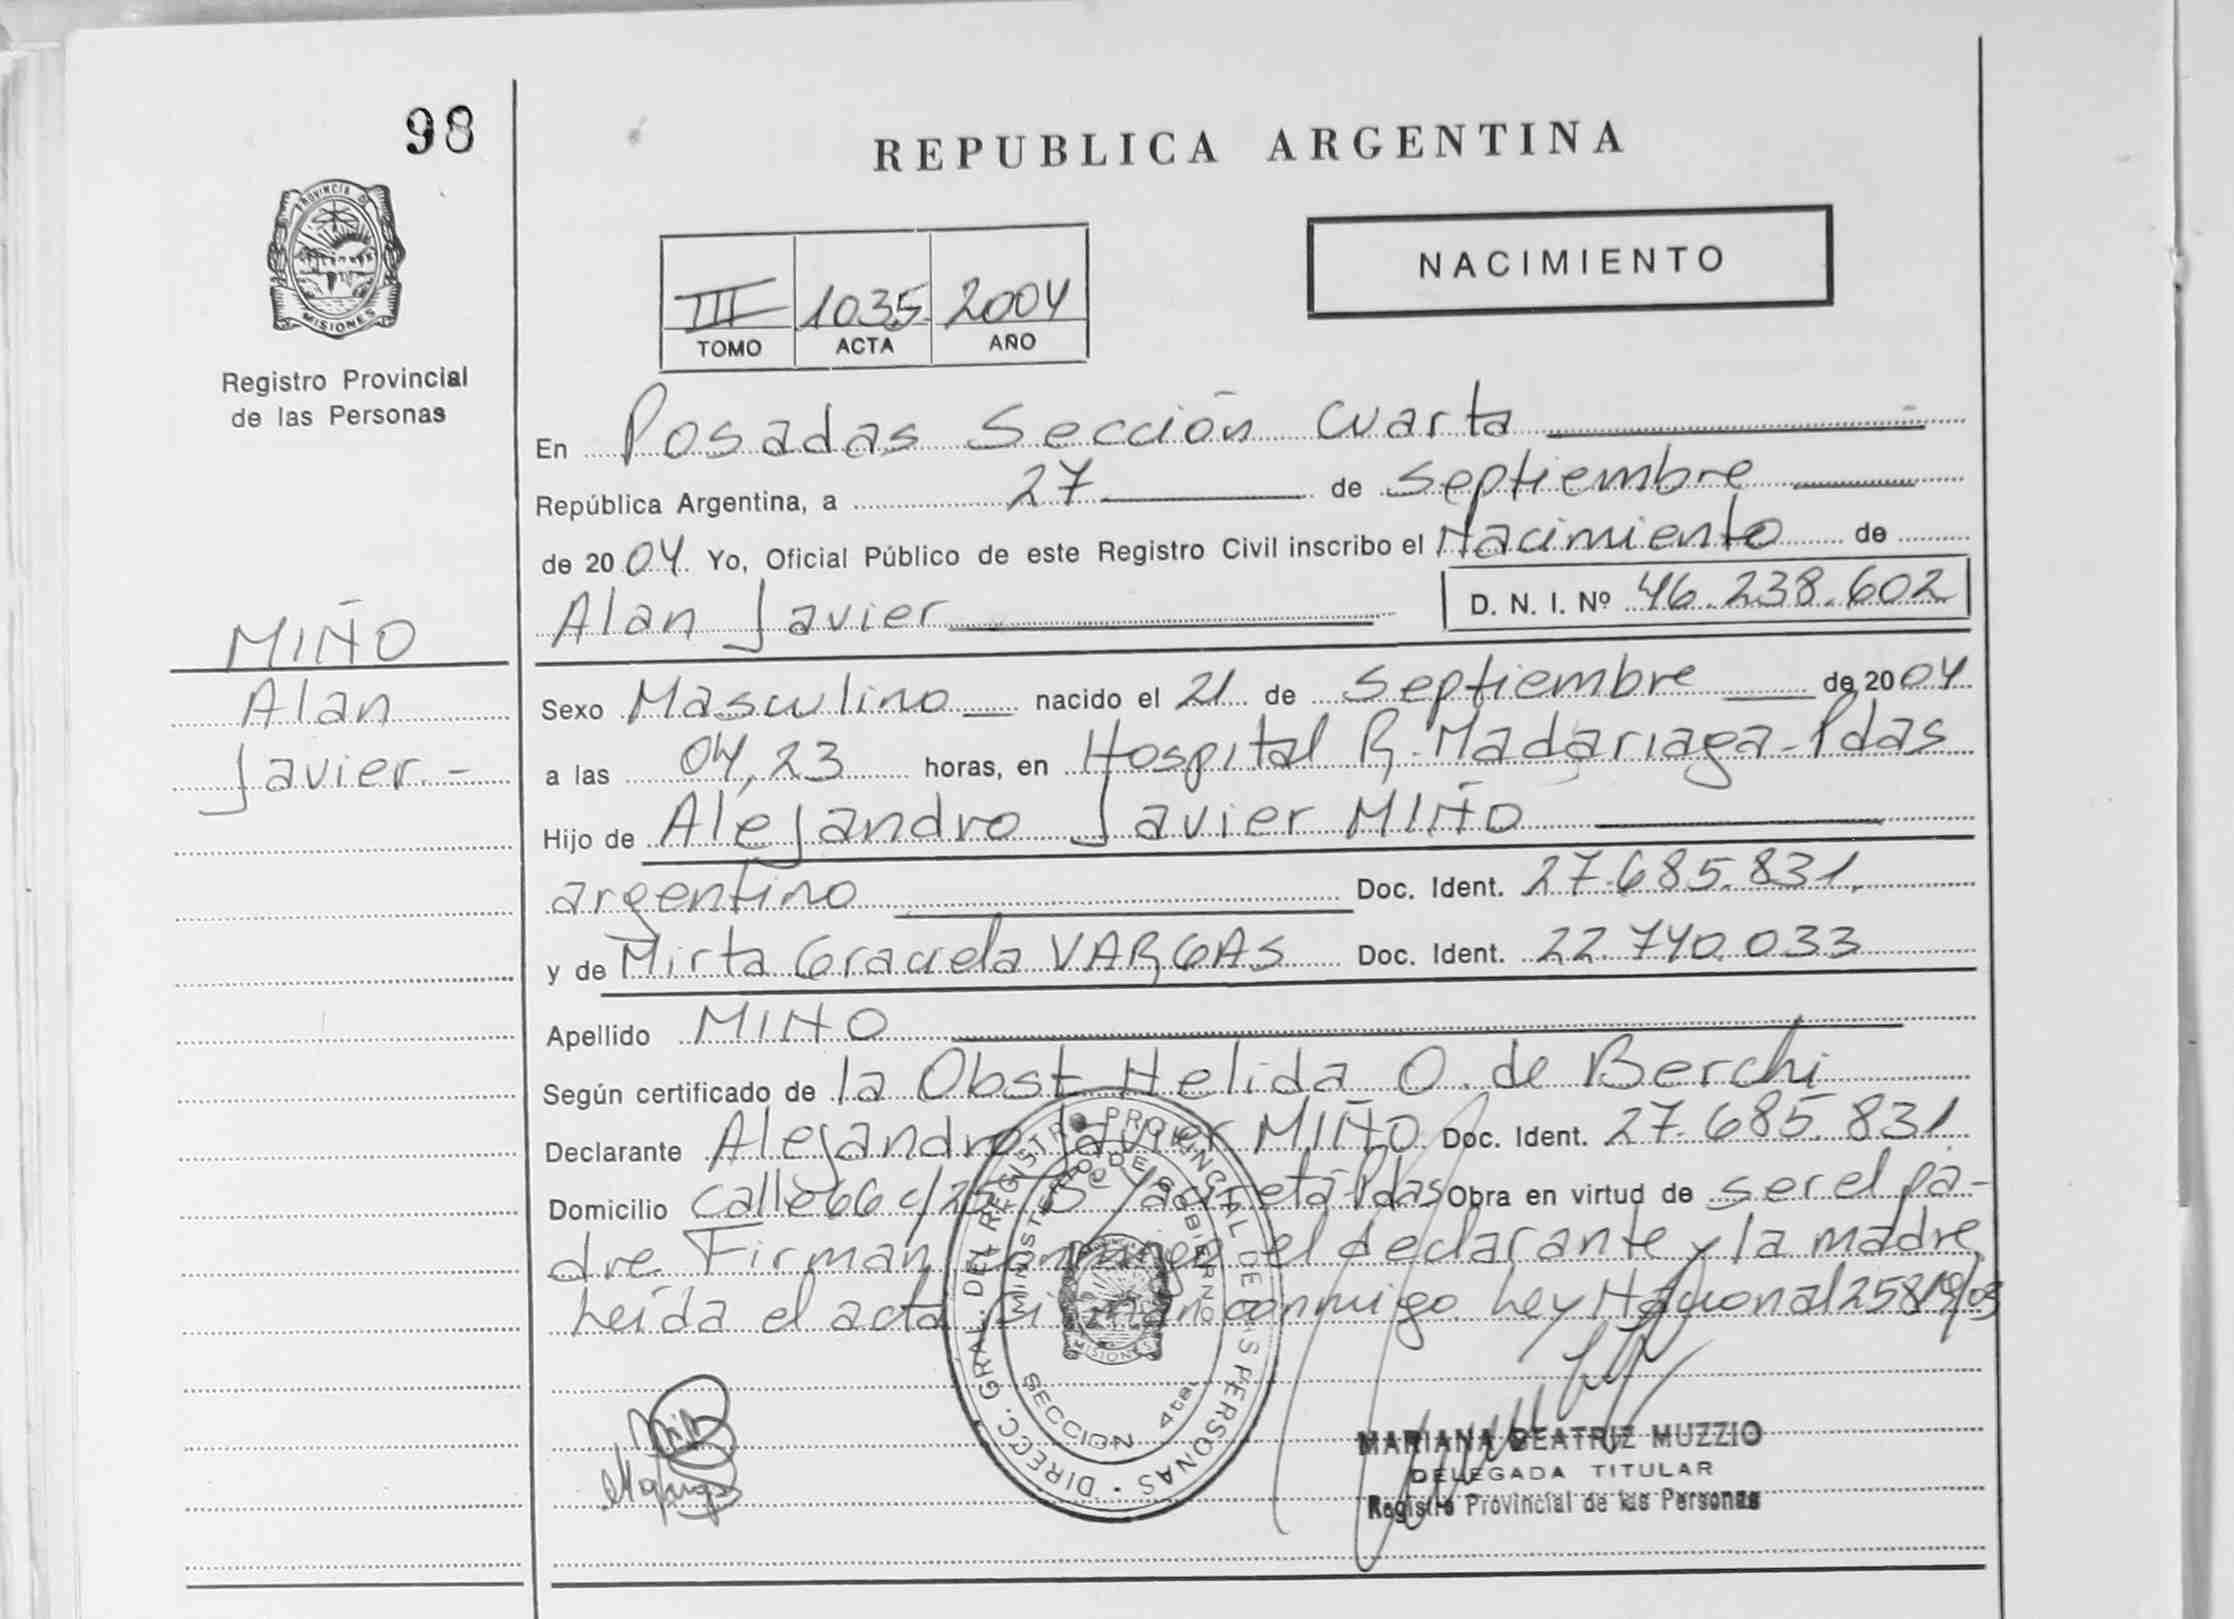 98
REPUBLICA ARGENTINA
PROVINCIA DE
MISIONES
Registro Provincial
de las Personas
NACIMIENTO
III 1035 2004
TOMO ACTA AÑO
En Posadas Sección Cuarta
República Argentina, a 27 de Septiembre
de 2004 Yo, Oficial Público de este Registro Civil inscribo el Nacimiento de
Alan Javier D. N. I. Nº 46.238.602
MIÑO
Alan
Javier.-
Sexo Masculino nacido el 21 de Septiembre de 2004
a las 04,23 horas, en Hospital R. Madariaga-Pdas
Hijo de Alejandro Javier MIÑO
argentino Doc. Ident. 27.685.831.
y de Mirta Graciela VARGAS Doc. Ident. 22.740.033
Apellido MIÑO
Según certificado de la Obst Helida O. de Berchi
Declarante Alejandro Javier MIÑO Doc. Ident. 27.685.831
Domicilio Calle 66 c/25 Bº Yacyretá-Pdas Obra en virtud de ser el pa-
dre Firman conmigo el declarante y la madre
Leída el acta firman conmigo. Ley Nacional 25819/03
DIRECC. GRAL. DEL REGISTRO PROVINCIAL DE LAS PERSONAS
MINISTERIO DE GOBIERNO
MISIONES
SECCION 4ta.
MARIANA BEATRIZ MUZZIO
DELEGADA TITULAR
Registro Provincial de las Personas